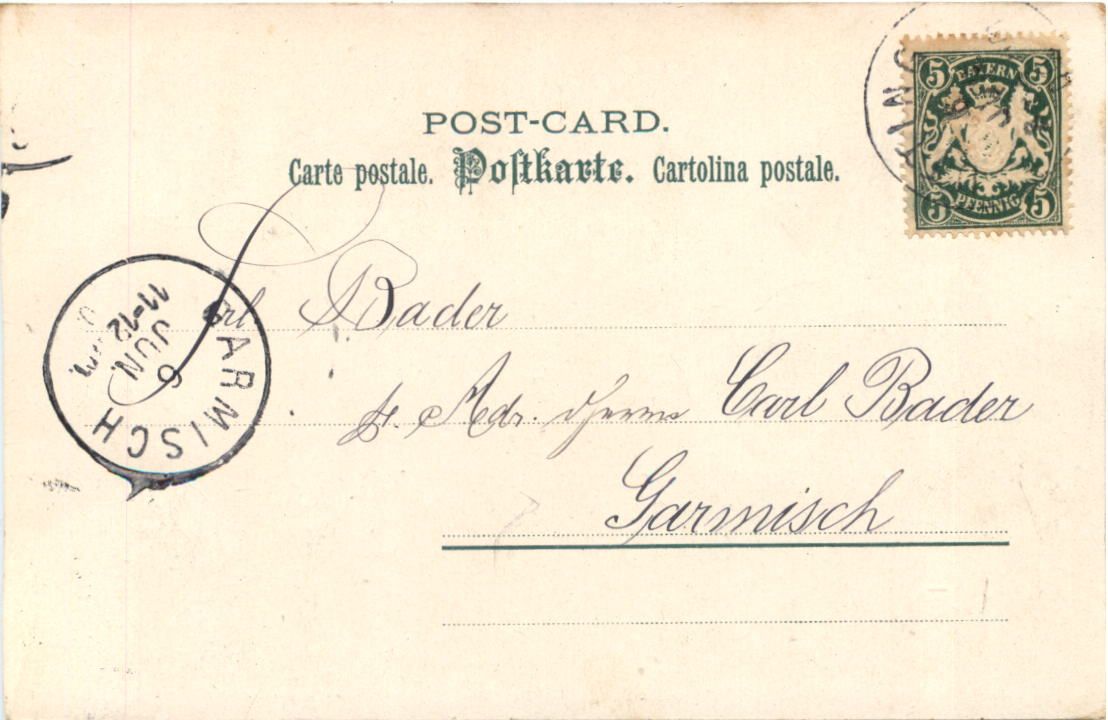 POST-CARD.
Carte postale. Postkarte. Cartolina postale.
5 BAYERN 5
5 PFENNIG 5
GARMISCH
6
JUN.
11-12
Frl. Bader
Adr. Herrn Carl Bader
Garmisch